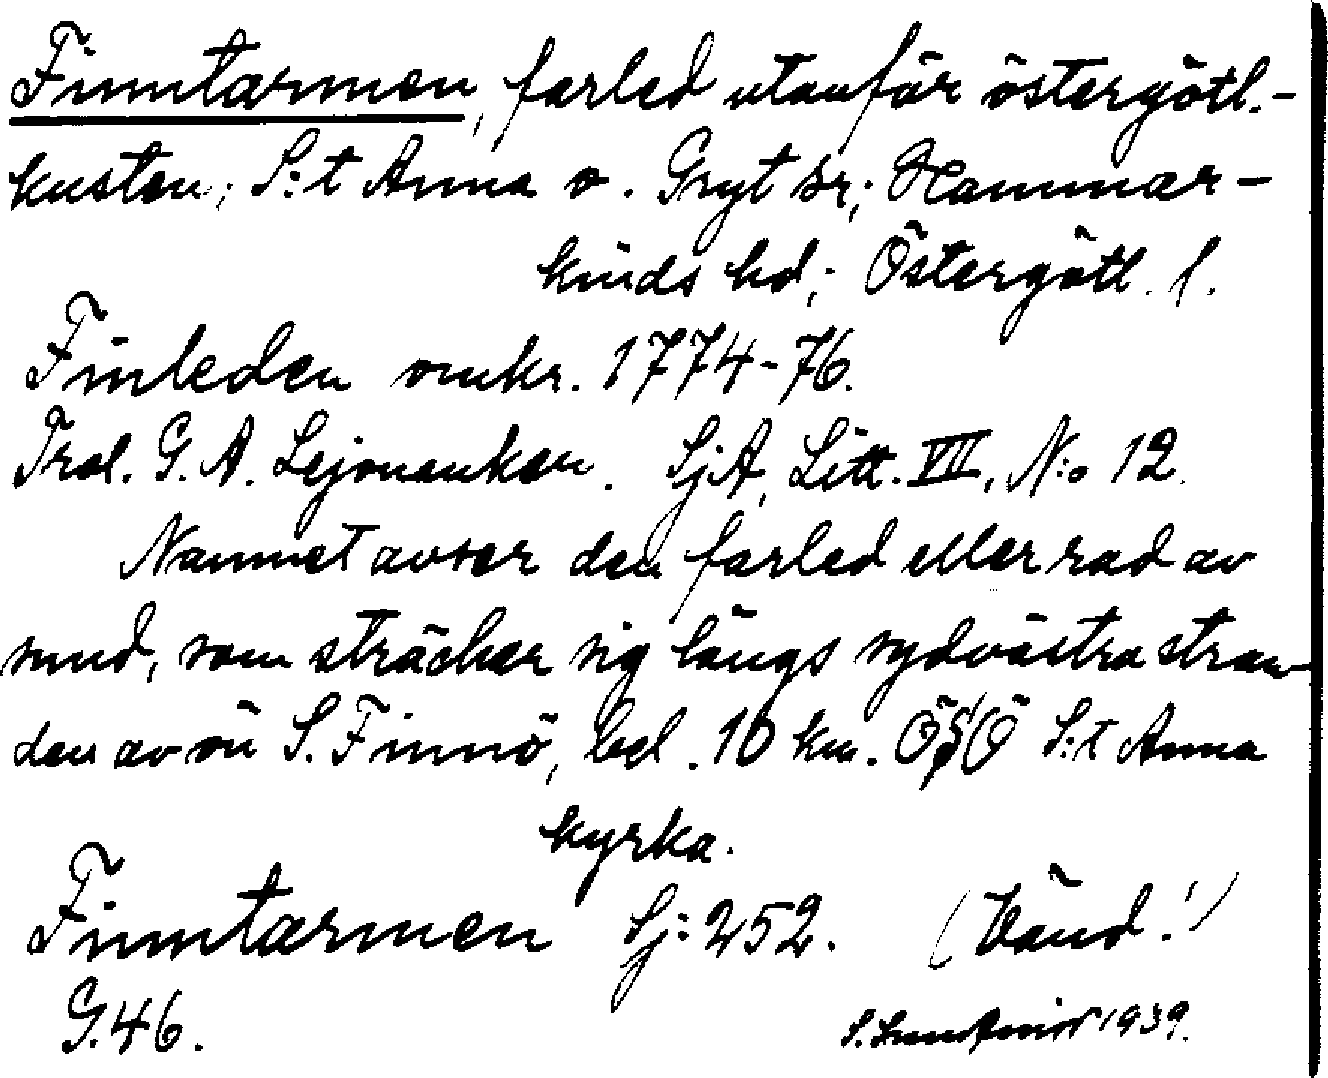 Finntarmen, farled utanför östergötl.-
kusten; S:t Anna o. Gryt sr; Hammar-
kinds hd; Östergötl. l.
Finleden omkr. 1774-76.
Trol. G. A. Lejonankar. SjA, Litt. VII, N:o 12.
Namnet avser den farled eller rad av
sund, som sträcker sig längs sydvästra stran-
den av ön S. Finnö, bel. 10 km. ÖSÖ S:t Anna
kyrka.
Finntarmen Sj: 252. (Vänd!)
G.46.
S. 1939.